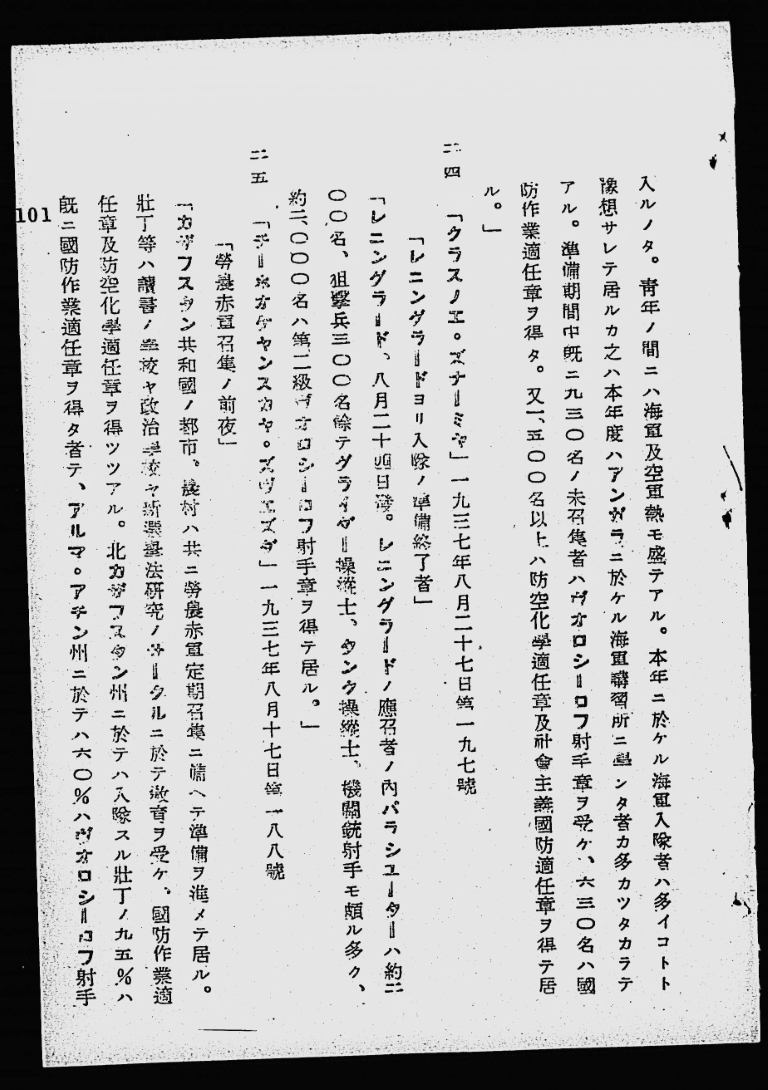 入ルノタ。青年ノ間ニハ海軍及空軍熱モ盛テアル。本年ニ於ケル海軍入隊者ハ多イコトト
豫想サレテ居ルカ之ハ本年度ハアンガラニ於ケル海軍講習所ニ學ンタ者カ多カツタカラテ
アル。準備期間中既ニ九三〇名ノ未召集者ハヴオロシーロフ射手章ヲ受ケ、六三〇名ハ國
防作業適任章ヲ得タ。又一、五〇〇名以上ハ防空化學適任章及社會主義國防適任章ヲ得テ居
ル。」
二四 「クラスノエ。ズナーミヤ」一九三七年八月二十七日第一九七號
「レニングラードヨリ入隊ノ準備終了者」
「レニングラード、八月二十四日發。レニングラードノ應召者ノ内パラシユーターハ約二
〇〇名、狙擊兵三〇〇名餘テグライダー操縱士、タンク操縱士、機關銃射手モ頗ル多ク、
約二、〇〇〇名ハ第二級ヴオロシーロフ射手章ヲ得テ居ル。」
二五 「チーホオケヤンスカヤ。ズヴエズダ」一九三七年八月十七日第一八八號
「勞農赤軍召集ノ前夜」
「カザフスタン共和國ノ都市、農村ハ共ニ勞農赤軍定期召集ニ備ヘテ準備ヲ進メテ居ル。
壯丁等ハ讀書ノ學校ヤ政治學校ヤ新選擧法研究ノサークルニ於テ敎育ヲ受ケ、國防作業適
任章及防空化學適任章ヲ得ツツアル。北カザフスタン州ニ於テハ入隊スル壯丁ノ九五%ハ
既ニ國防作業適任章ヲ得タ者テ、アルマ。アチン州ニ於テハ六〇%ハヴオロシーロフ射手
101